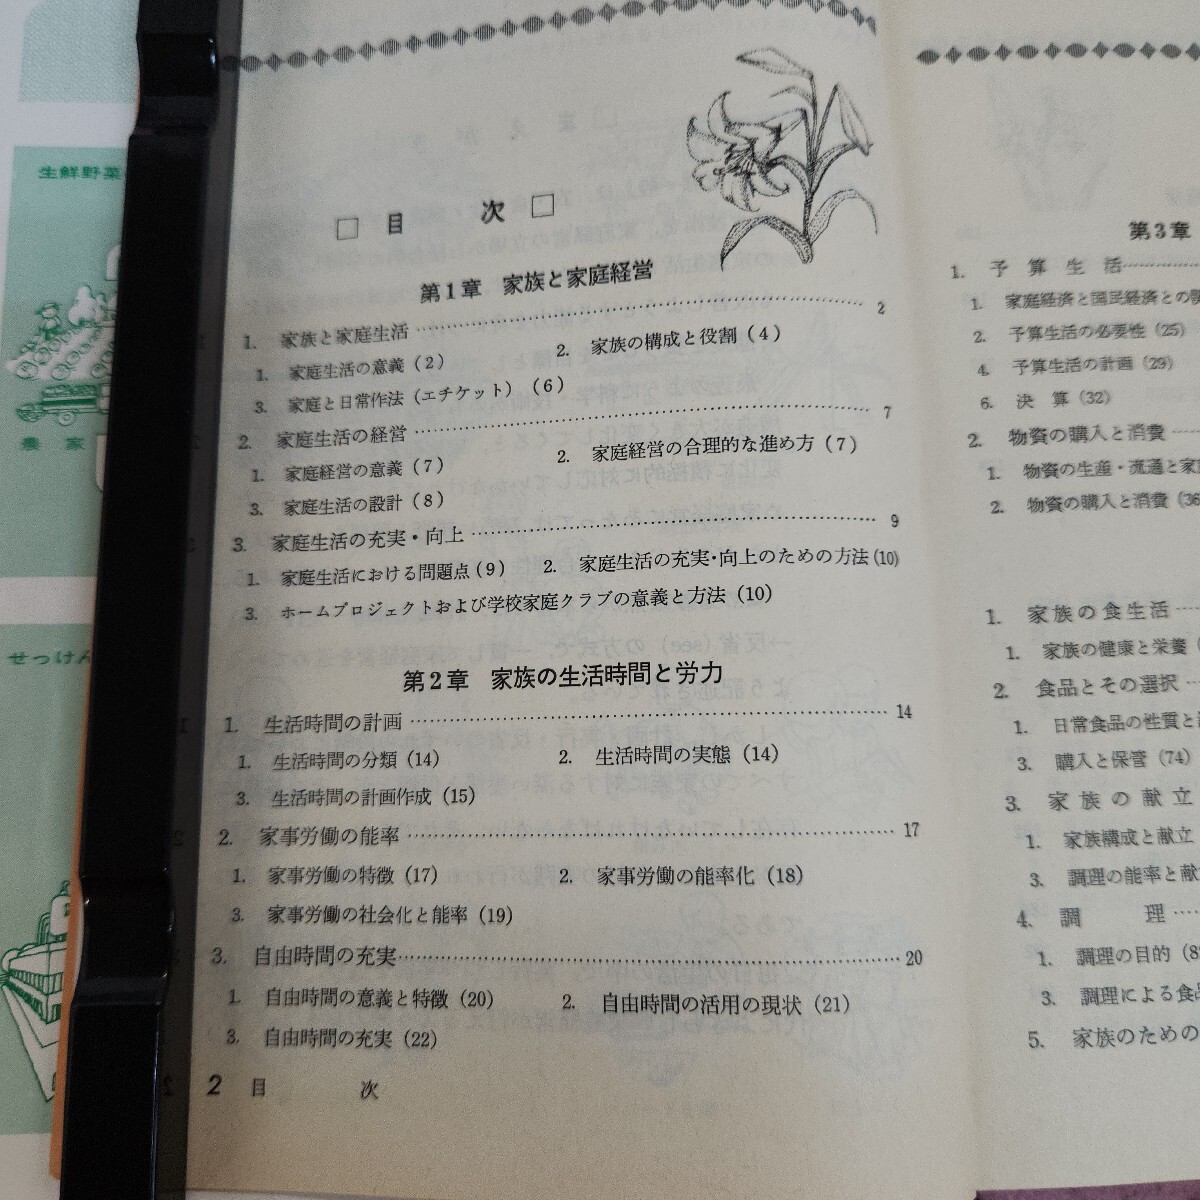 生鮮野菜
農家
せっけん
□ 目 次 □
第1章 家族と家庭経営
1. 家族と家庭生活 …… 2
1. 家庭生活の意義（2） 2. 家族の構成と役割（4）
3. 家庭と日常作法（エチケット）（6）
2. 家庭生活の経営 …… 7
1. 家庭経営の意義（7） 2. 家庭経営の合理的な進め方（7）
3. 家庭生活の設計（8）
3. 家庭生活の充実・向上 …… 9
1. 家庭生活における問題点（9） 2. 家庭生活の充実・向上のための方法（10）
3. ホームプロジェクトおよび学校家庭クラブの意義と方法（10）
第2章 家族の生活時間と労力
1. 生活時間の計画 …… 14
1. 生活時間の分類（14） 2. 生活時間の実態（14）
3. 生活時間の計画作成（15）
2. 家事労働の能率 …… 17
1. 家事労働の特徴（17） 2. 家事労働の能率化（18）
3. 家事労働の社会化と能率（19）
3. 自由時間の充実 …… 20
1. 自由時間の意義と特徴（20） 2. 自由時間の活用の現状（21）
3. 自由時間の充実（22）
2 目 次
第3章
1. 予算生活 ……
1. 家庭経済と国民経済との
2. 予算生活の必要性（25）
4. 予算生活の計画（29）
6. 決算（32）
2. 物資の購入と消費 ……
1. 物資の生産・流通と家
2. 物資の購入と消費（36
1. 家族の食生活 ……
1. 家族の健康と栄養（
2. 食品とその選択 ……
1. 日常食品の性質と
3. 購入と保管（74）
3. 家族の献立
1. 家族構成と献立
3. 調理の能率と献
4. 調理 ……
1. 調理の目的（8
3. 調理による食
5. 家族のための